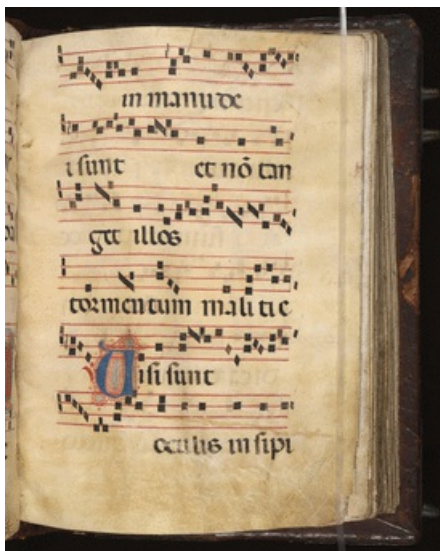 in manu de
i sunt et nō tan
get illos
tormentum malitie
Uisi sunt
oculis insipi